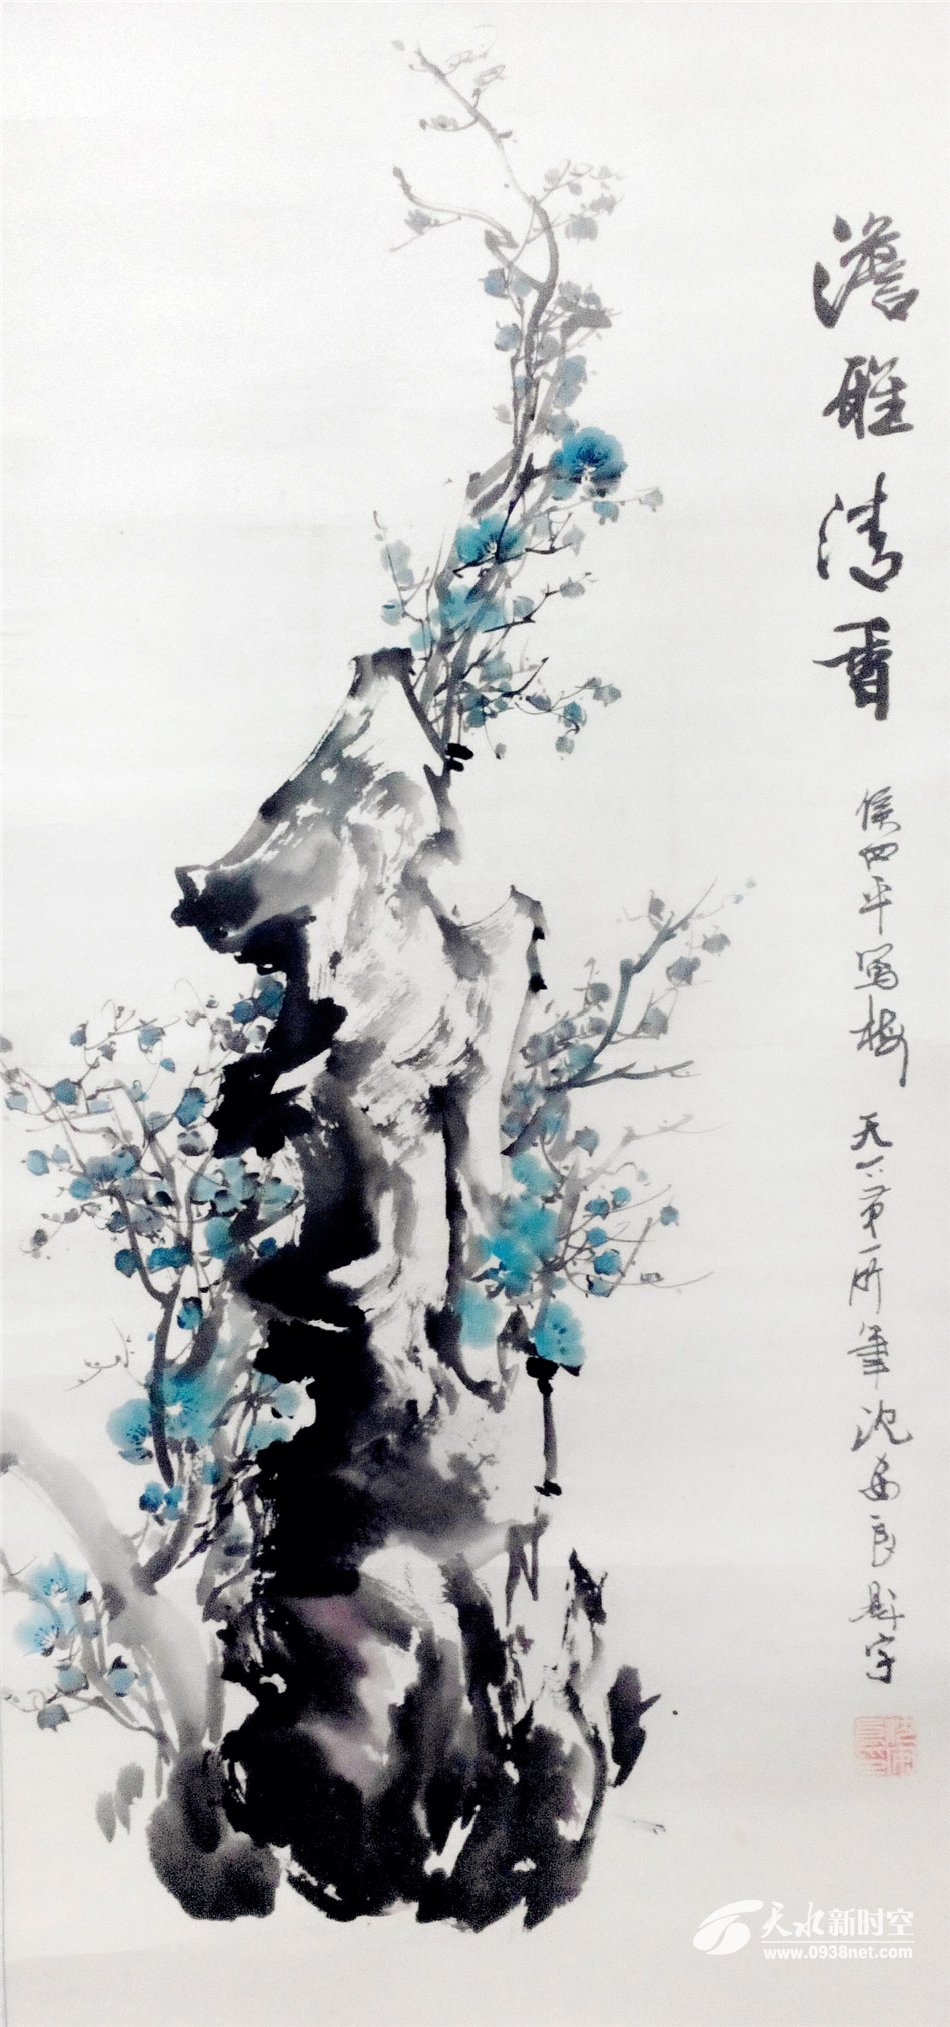 澹雅清香
侯四平写梅 天一第一所笔沈安良题字
天水新时空
www.0938net.com